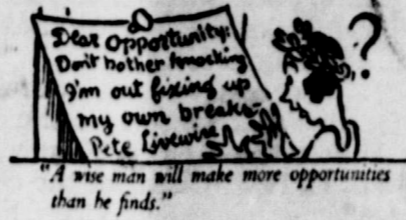 Dear Opportunity:
Don't bother knocking
I'm out fixing up
my own breaks—
Pete Livewire
?
"A wise man will make more opportunities
than he finds."